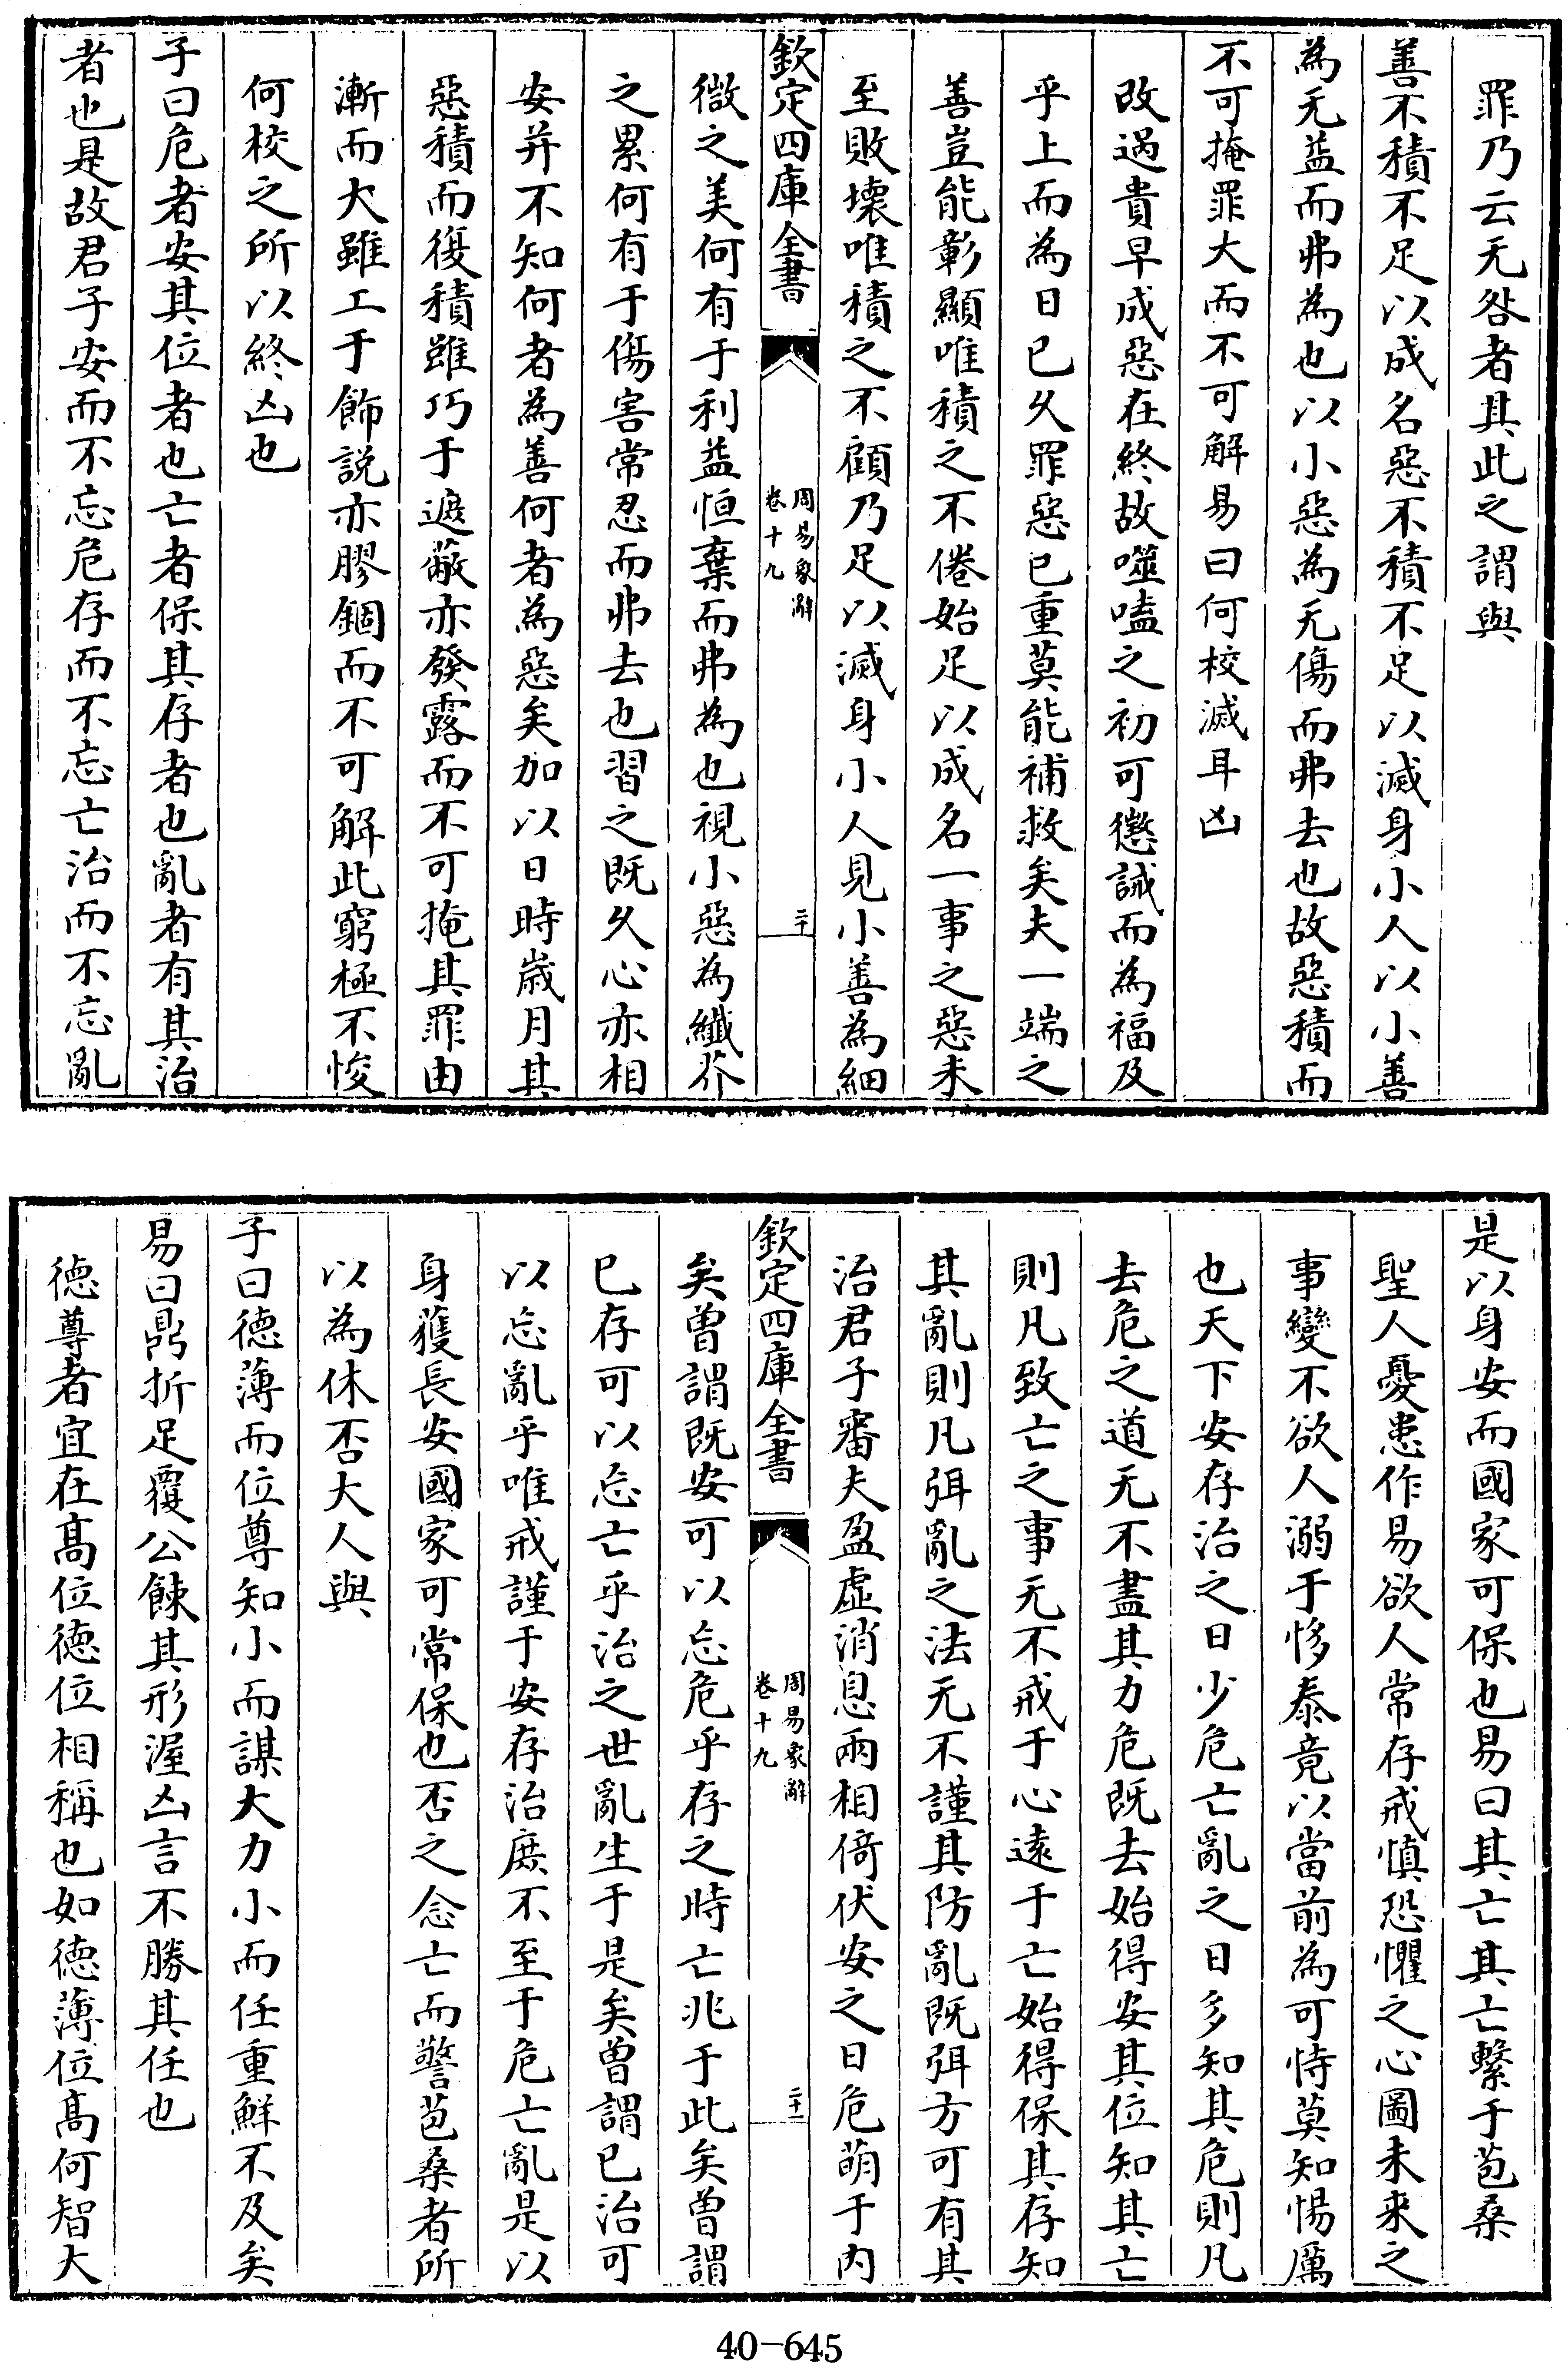 罪乃云无咎者其此之謂與
善不積不足以成名惡不積不足以滅身小人以小善
為无益而弗為也以小惡為无傷而弗去也故惡積而
不可掩罪大而不可解易曰何校滅耳凶
改過貴早成惡在終故噬嗑之初可懲誡而為福及
乎上而為日已久罪惡已重莫能補救矣夫一端之
善豈能彰顯唯積之不倦始足以成名一事之惡未
至敗壞唯積之不顧乃足以滅身小人見小善為細
欽定四庫全書
周易象辭
卷十九
二十
微之美何有于利益恒棄而弗為也視小惡為纖芥
之累何有于傷害常忍而弗去也習之既久心亦相
安并不知何者為善何者為惡矣加以日時歲月其
惡積而復積雖巧于遮蔽亦發露而不可掩其罪由
漸而大雖工于飾說亦膠錮而不可解此窮極不悛
何校之所以終凶也
子曰危者安其位者也亡者保其存者也亂者有其治
者也是故君子安而不忘危存而不忘亡治而不忘亂
是以身安而國家可保也易曰其亡其亡繫于苞桑
聖人憂患作易欲人常存戒慎恐懼之心圖未來之
事變不欲人溺于侈泰竟以當前為可恃莫知惕厲
也天下安存治之日少危亡亂之日多知其危則凡
去危之道无不盡其力危既去始得安其位知其亡
則凡致亡之事无不戒于心遠于亡始得保其存知
其亂則凡弭亂之法无不謹其防亂既弭方可有其
治君子審夫盈虛消息兩相倚伏安之日危萌于內
欽定四庫全書
周易象辭
卷十九
二十一
矣曾謂既安可以忘危乎存之時亡兆于此矣曾謂
已存可以忘亡乎治之世亂生于是矣曾謂已治可
以忘亂乎唯戒謹于安存治庶不至于危亡亂是以
身獲長安國家可常保也否之念亡而警苞桑者所
以為休否大人與
子曰德薄而位尊知小而謀大力小而任重鮮不及矣
易曰鼎折足覆公餗其形渥凶言不勝其任也
德尊者宜在高位德位相稱也如德薄位高何智大
40-645